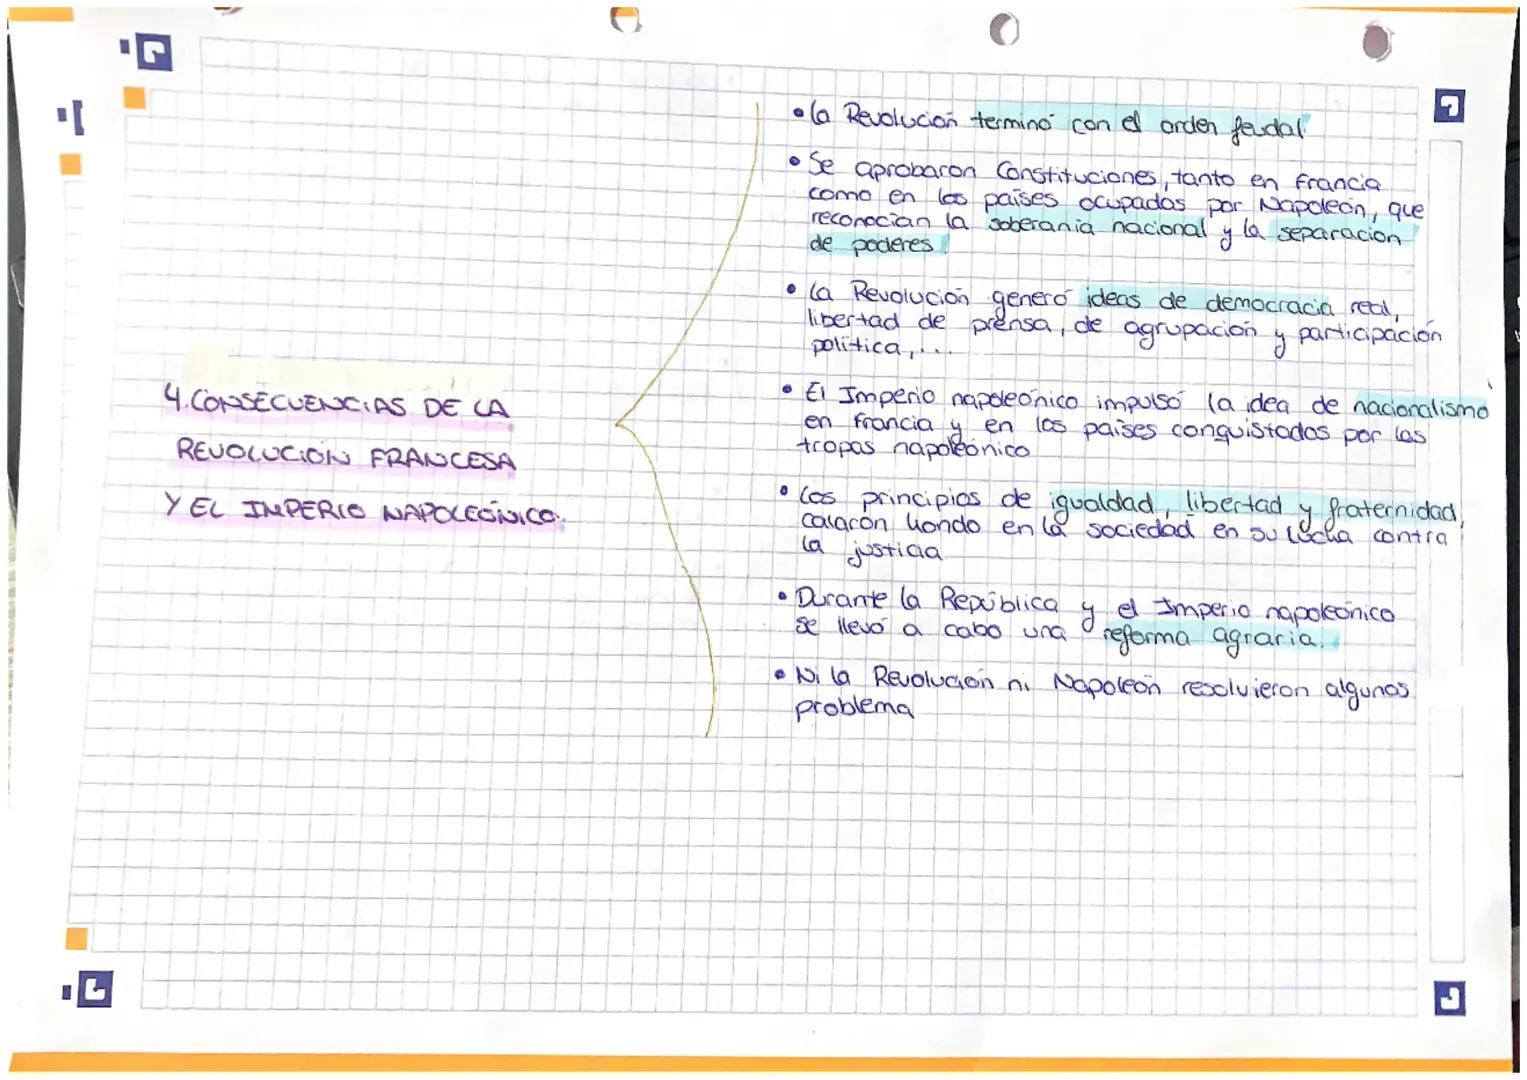 4. CONSECUENCIAS DE LA
REVOLUCIÓN FRANCESA
Y EL IMPERIO NAPOLEÓNICO.
• La Revolución terminó con el orden feudal
• Se aprobaron Constituciones, tanto en Francia
como en los países ocupados por Napoleón, que
reconocían la soberanía nacional y la separación
de poderes.
• La Revolución generó ideas de democracia real,
libertad de prensa, de agrupación y participación
política,...
• El Imperio napoleónico impulsó la idea de nacionalismo
en Francia y en los países conquistados por las
tropas napoleónico
• Los principios de igualdad, libertad y fraternidad,
calaron hondo en la sociedad en su lucha contra
la justicia
• Durante la República y el Imperio napoleónico
se llevó a cabo una reforma agraria.
• Ni la Revolución ni Napoleón resolvieron algunos
problema